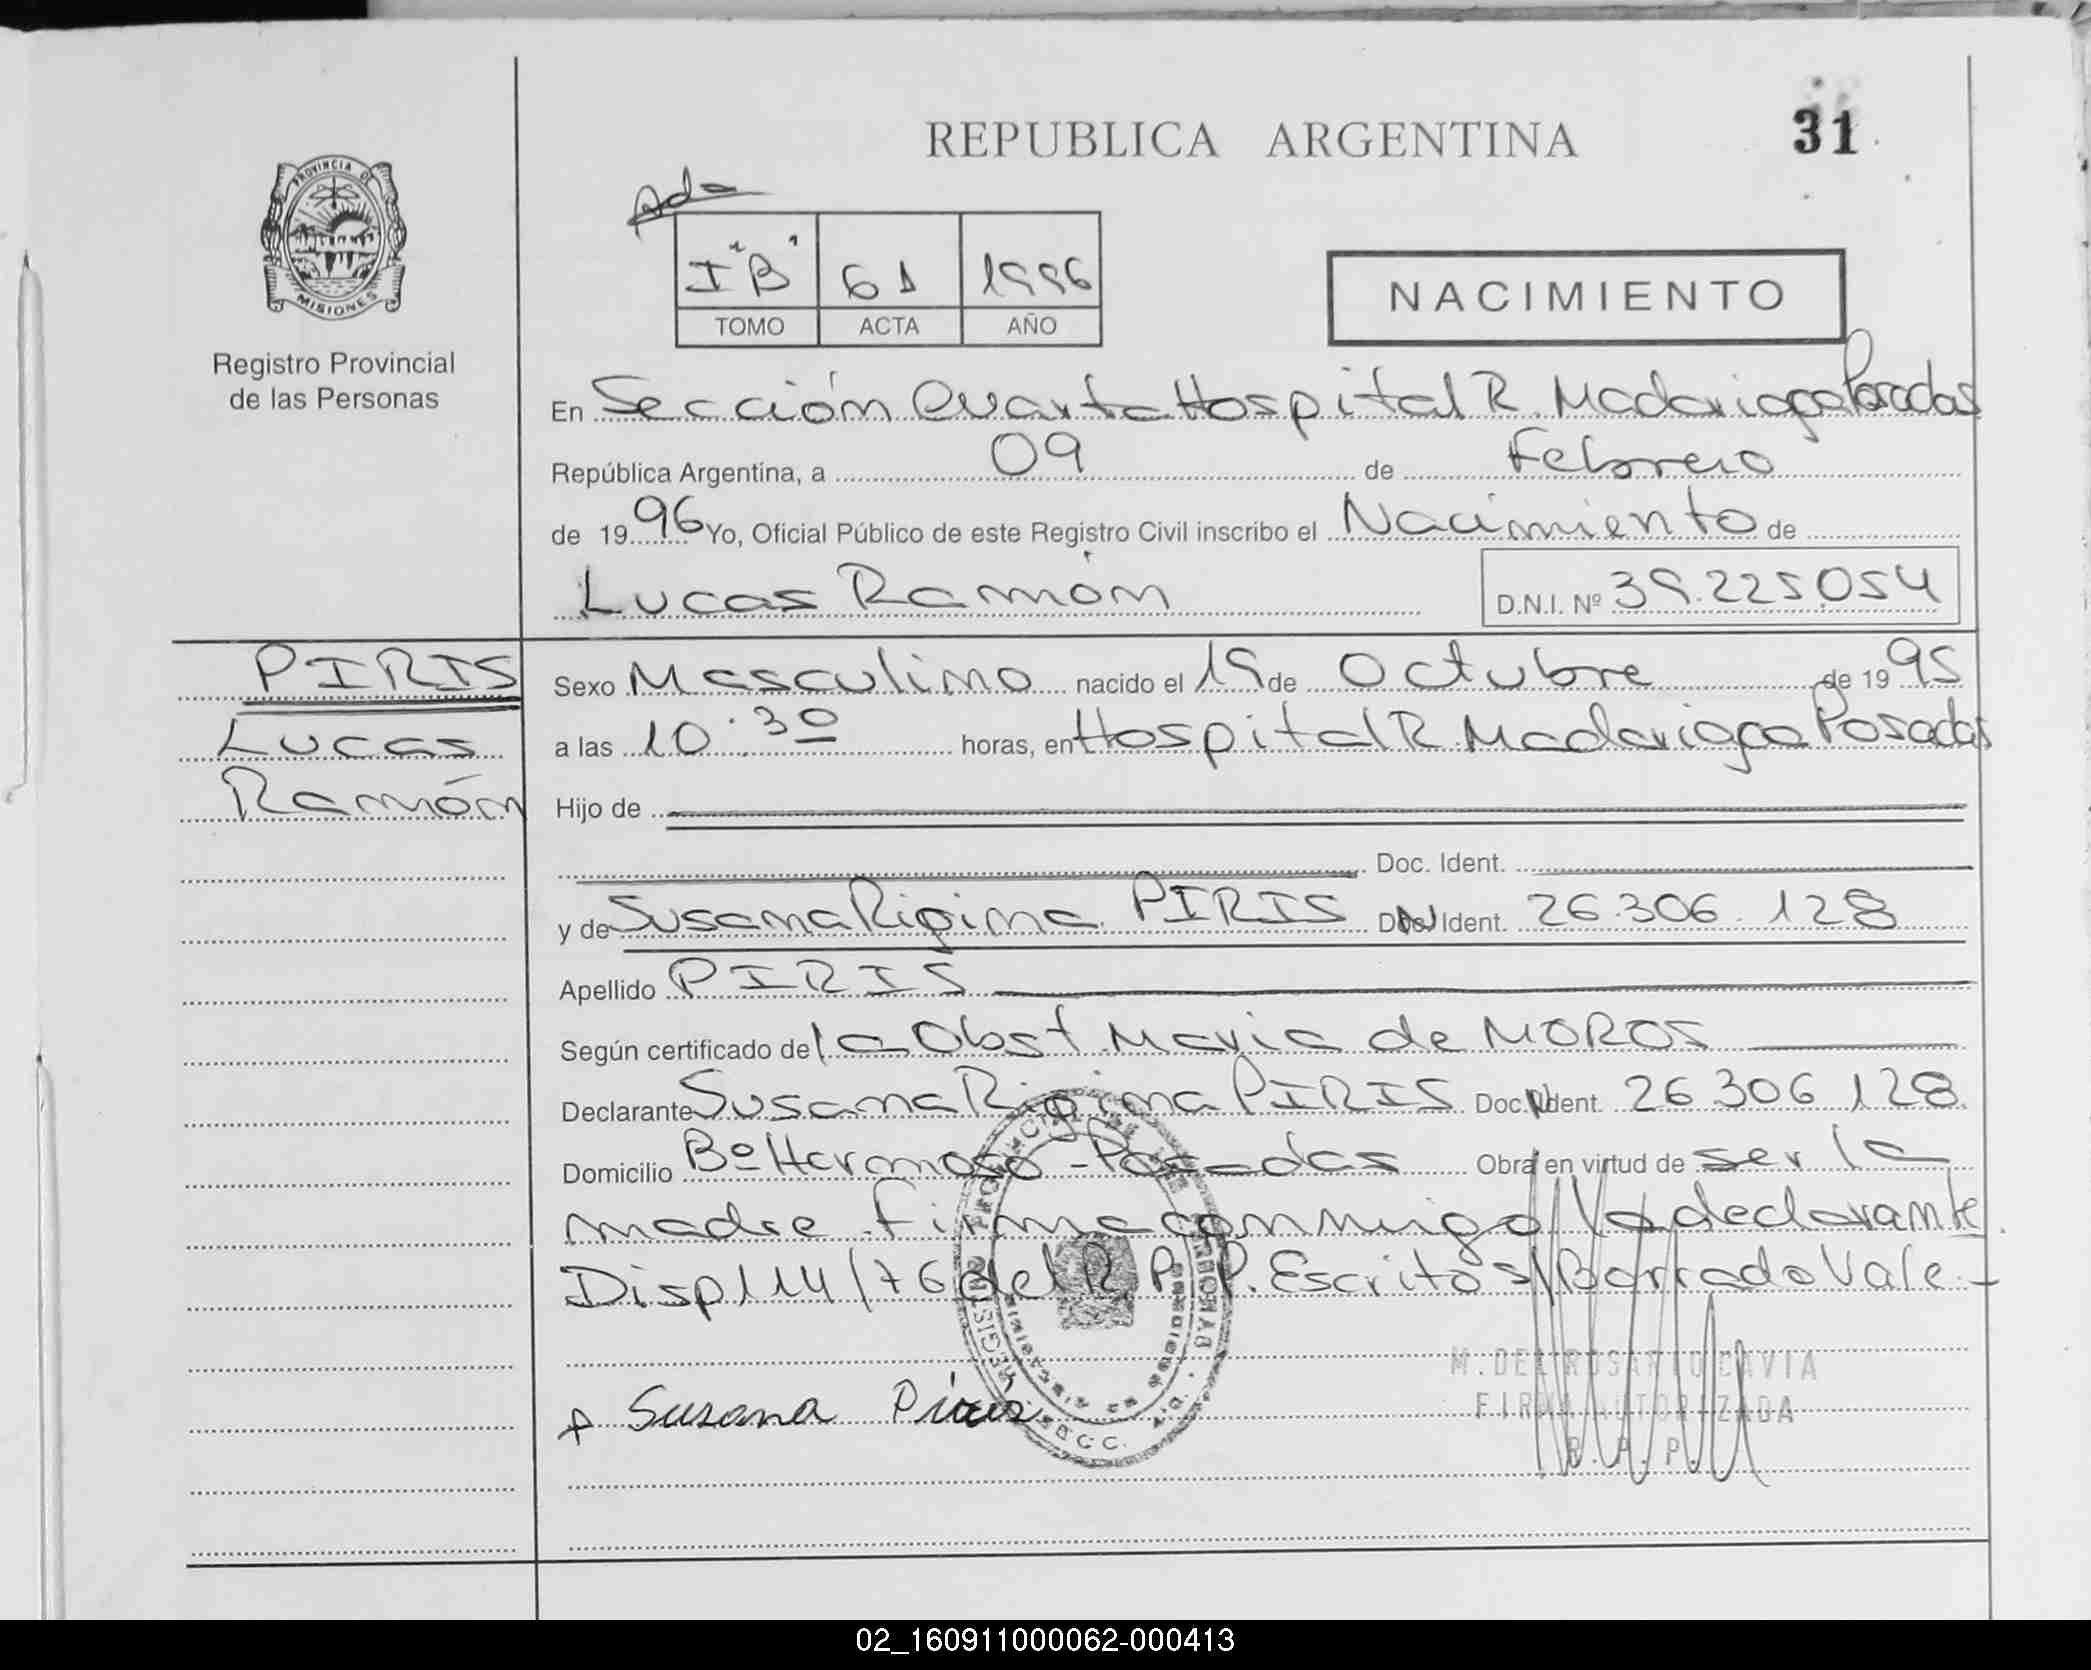 REPUBLICA ARGENTINA
31
PROVINCIA DE
MISIONES
Registro Provincial
de las Personas
Ada
I "B" 61 1996
TOMO ACTA AÑO
NACIMIENTO
En Sección Cuarta Hospital R. Madariaga Posadas
República Argentina, a 09 de Febrero
de 1996 Yo, Oficial Público de este Registro Civil inscribo el Nacimiento de
Lucas Ramón D.N.I. Nº 39.225.054
PIRIS
Lucas
Ramón
Sexo Masculino nacido el 19 de Octubre de 1995
a las 10:30 horas, en Hospital R Madariaga Posadas
Hijo de
Doc. Ident.
y de Susana Rigina PIRIS Doc. Ident. 26.306.128
Apellido PIRIS
Según certificado de la Obst Maria de MOROS
Declarante Susana Rigina PIRIS Doc. Ident. 26.306.128.
Domicilio Bº Hermoso - Posadas Obra en virtud de ser la
madre. Firma conmigo la declarante.
Disp 114/76 del R.P.P. Escrito s/Borrado Vale.-
M. DEL ROSARIO CAVIA
FIRMA AUTORIZADA
R.P.P.
Susana Piris
02_160911000062-000413